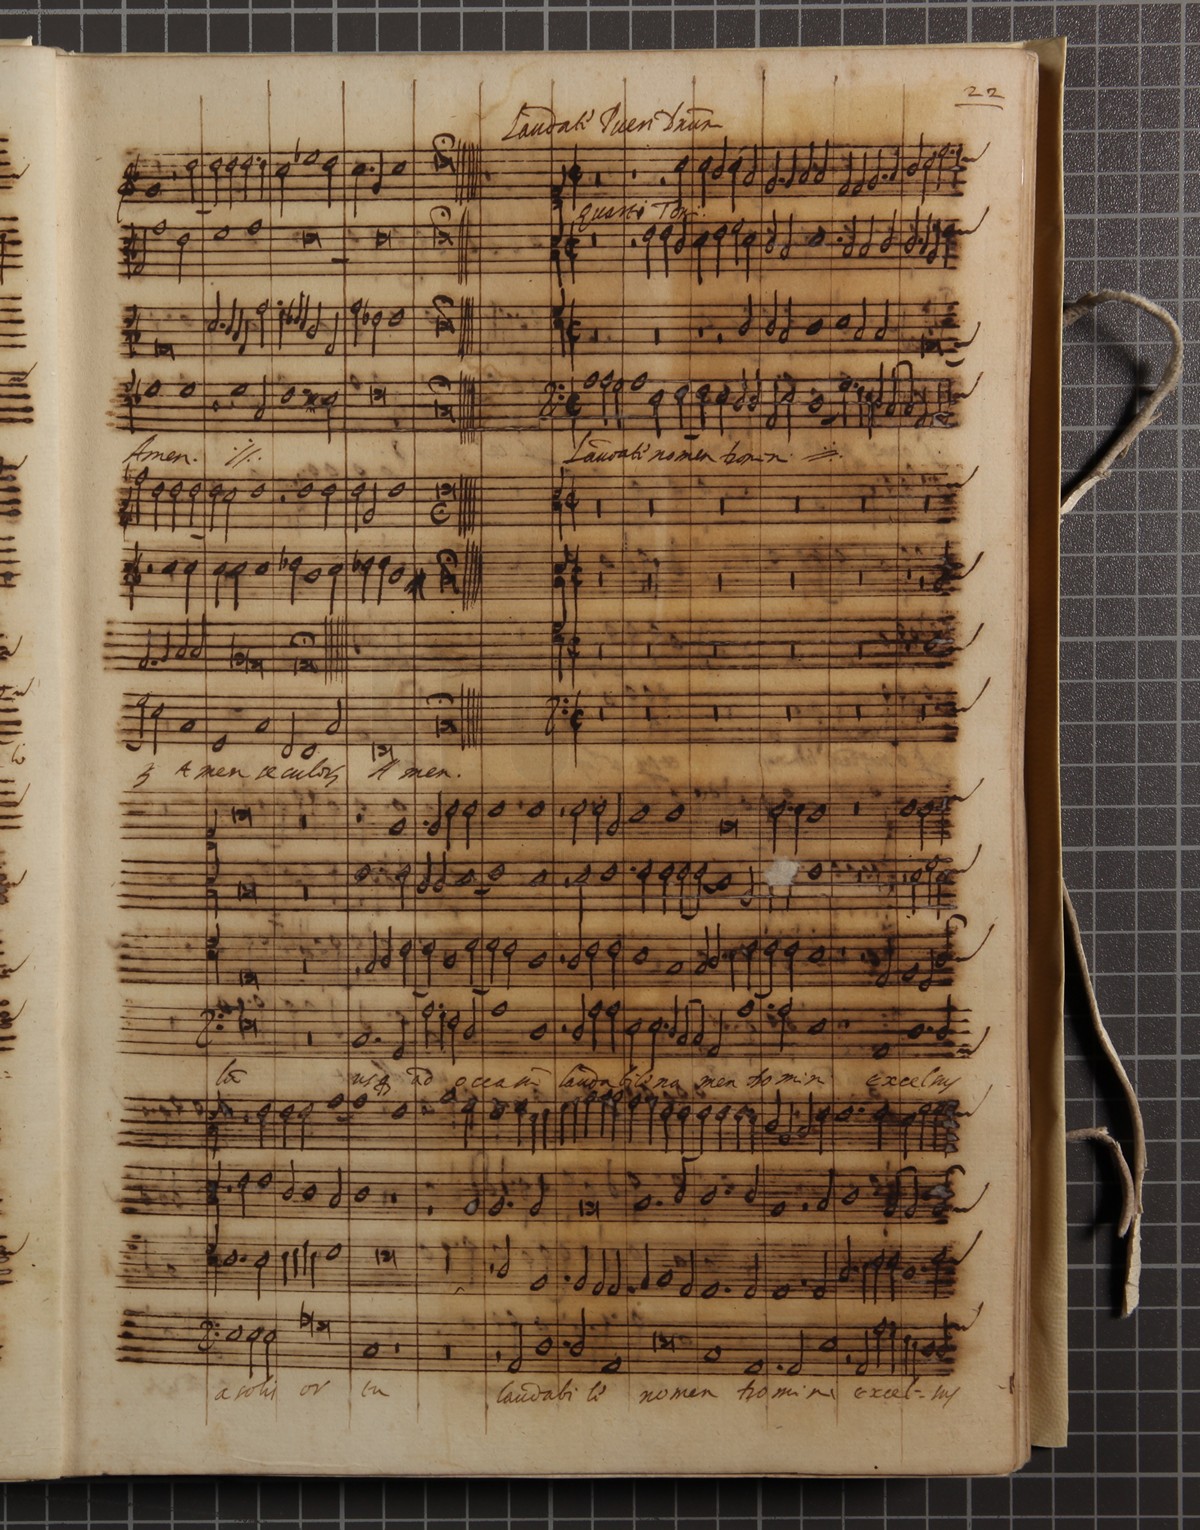 22
Laudate Pueri Dñum
quarti Toni
Amen. :||: Laudate nomen Domin :||:
Amen seculoꝝ Amen.
usq̃ ad occasũ laudabile nomen Domini Excelsus
a solis or tu laudabi le nomen Domini Excelsus